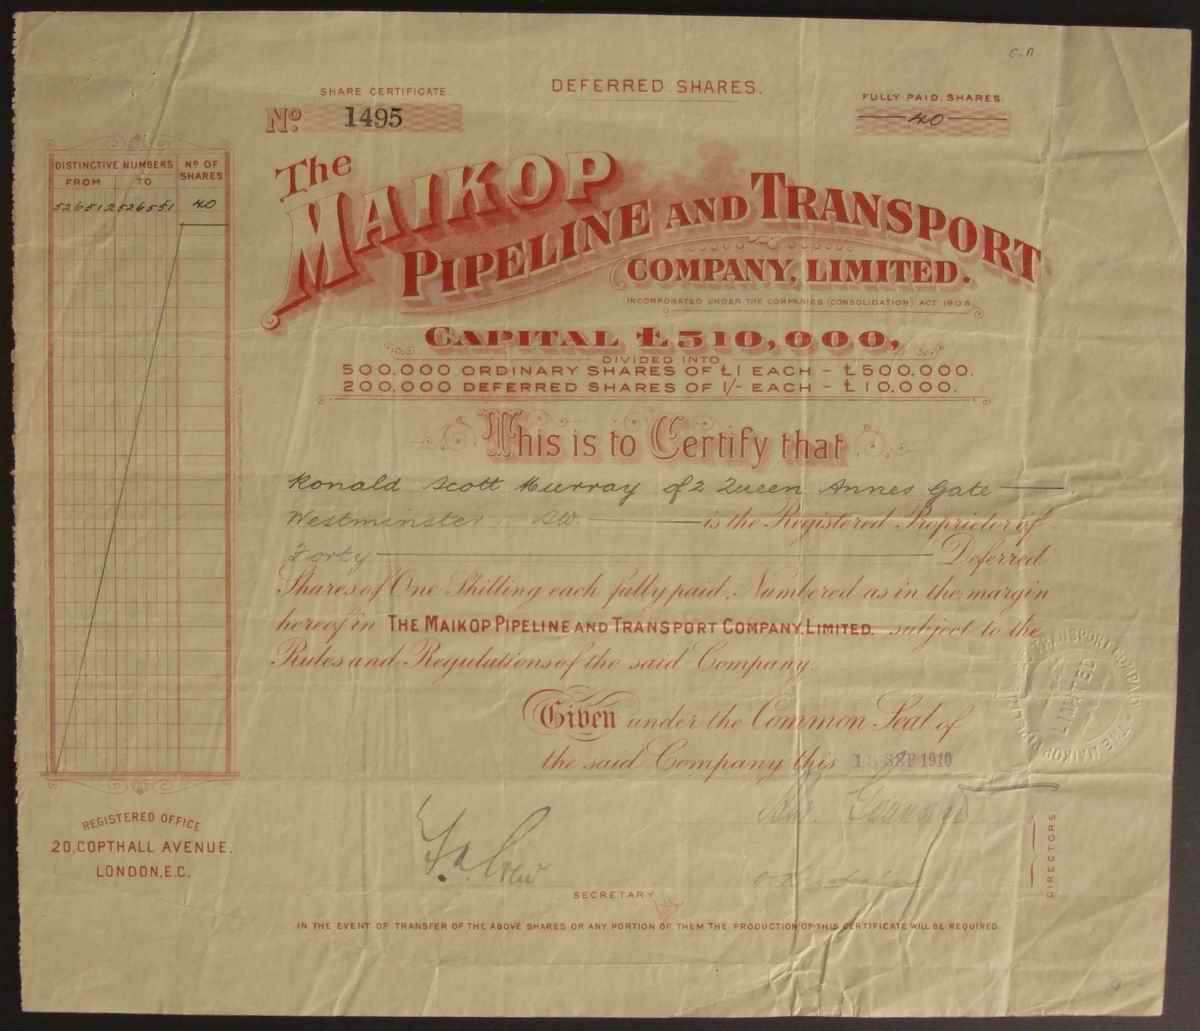 C.A
DEFERRED SHARES.
SHARE CERTIFICATE.
No. 1495
FULLY PAID SHARES
40
DISTINCTIVE NUMBERS
FROM TO
No OF SHARES
526512 526551 40
The
MAIKOP
PIPELINE AND TRANSPORT
COMPANY, LIMITED.
INCORPORATED UNDER THE COMPANIES (CONSOLIDATION) ACT 1908
CAPITAL £510,000,
DIVIDED INTO
500,000 ORDINARY SHARES OF £1 EACH - £500.000.
200,000 DEFERRED SHARES OF 1/- EACH - £10.000.
This is to Certify that
Ronald Scott Murray of 2 Queen Annes Gate
Westminster SW. is the Registered Proprietor of
Forty Deferred
Shares of One Shilling each fully paid, Numbered as in the margin
hereof in THE MAIKOP PIPELINE AND TRANSPORT COMPANY, LIMITED. subject to the
Rules and Regulations of the said Company.
Given under the Common Seal of
the said Company this SEP 1910
THE MAIKOP PIPELINE AND TRANSPORT COMPANY
LIMITED
REGISTERED OFFICE
20, COPTHALL AVENUE.
LONDON, E.C.
SECRETARY
DIRECTORS
IN THE EVENT OF TRANSFER OF THE ABOVE SHARES OR ANY PORTION OF THEM THE PRODUCTION OF THIS CERTIFICATE WILL BE REQUIRED.